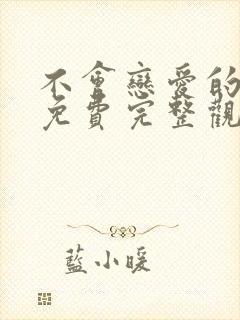 不會戀愛的
免費完整觀
藍小暖